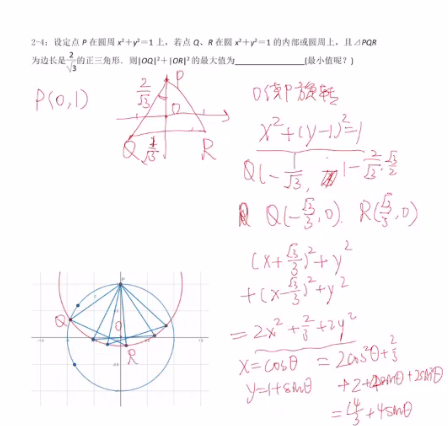 2-4: 设定点 P 在圆周 x²+y²=1 上, 若点 Q、R 在圆 x²+y²=1 的内部或圆周上, 且⊿PQR
为边长是 2/√3 的正三角形. 则|OQ|²+|OR|²的最大值为____________(最小值呢?)
P(0,1)
P
2/√3
O
Q
1/√3
R
O绕P旋转
x²+(y-1)²=1
Q(-1/√3, 1-2/√3·√3/2
Q(-√3/3,0). R(√3/3,0)
(x+√3/3)²+y²
+(x-√3/3)²+y²
=2x²+2/3+2y²
x=cosθ =2cos²θ+2/3
y=1+sinθ
=14/3+4sinθ
Q
O
R